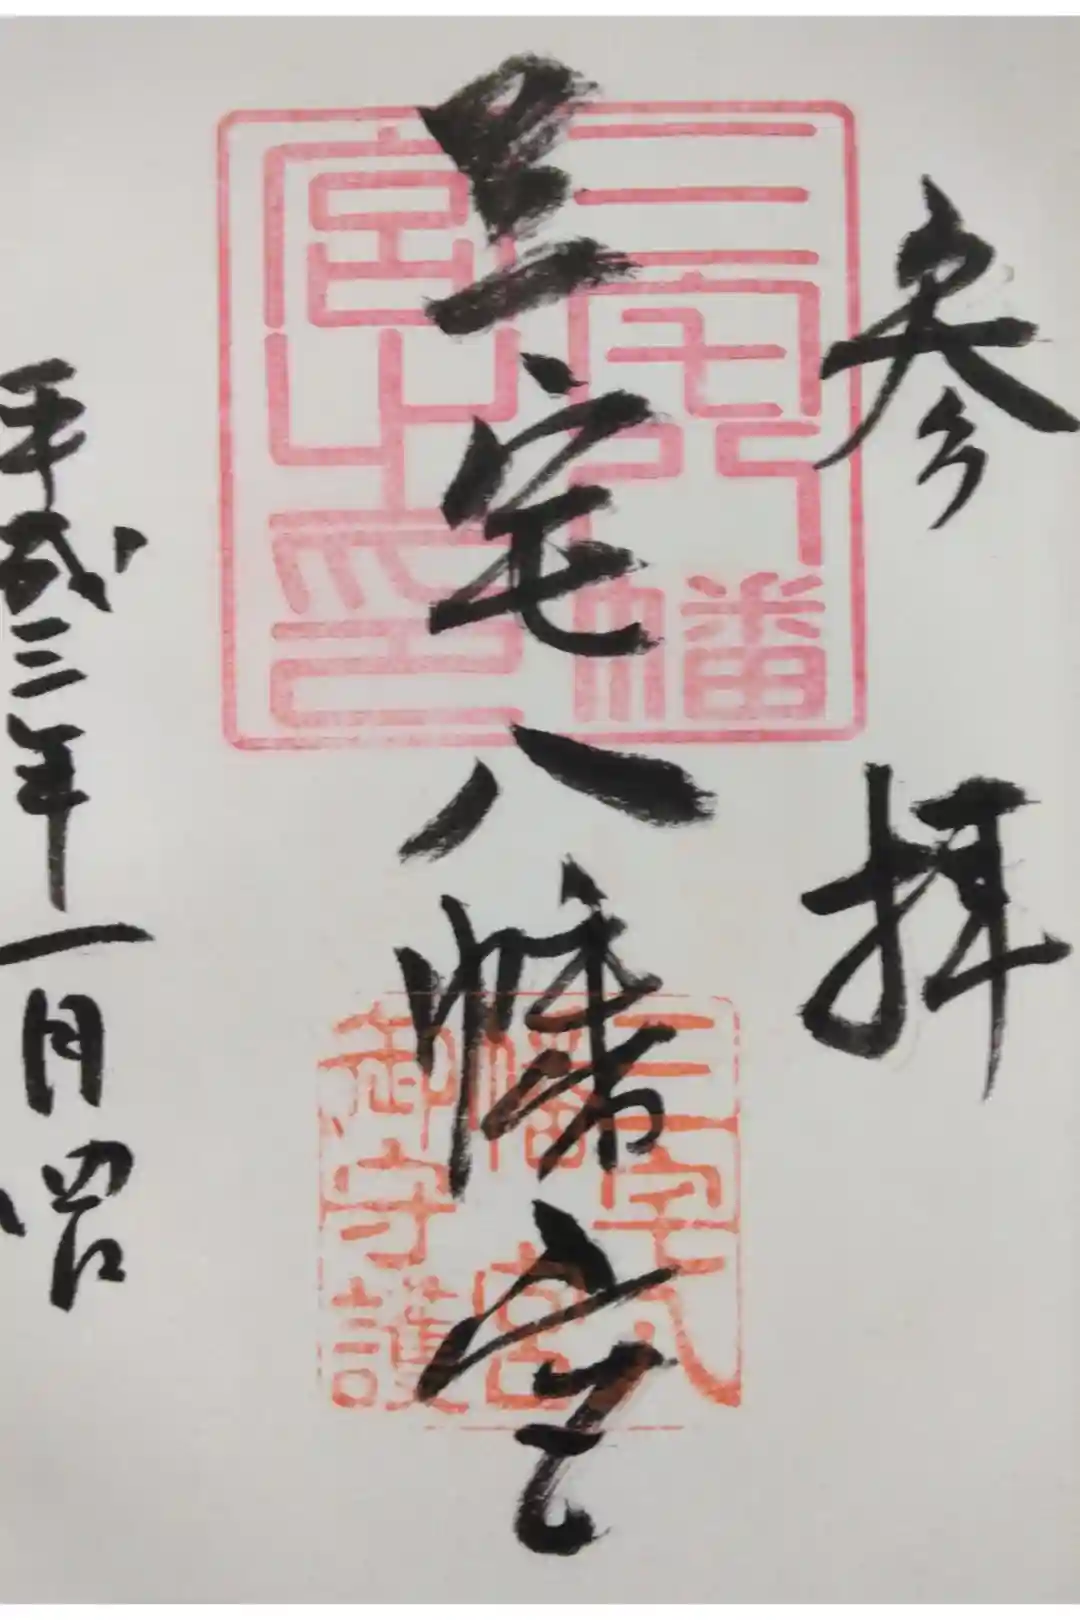 参拝
三宅八幡宮
三宅八幡
宮之印
三宅八
幡宮
御守護
平成三年一月四日